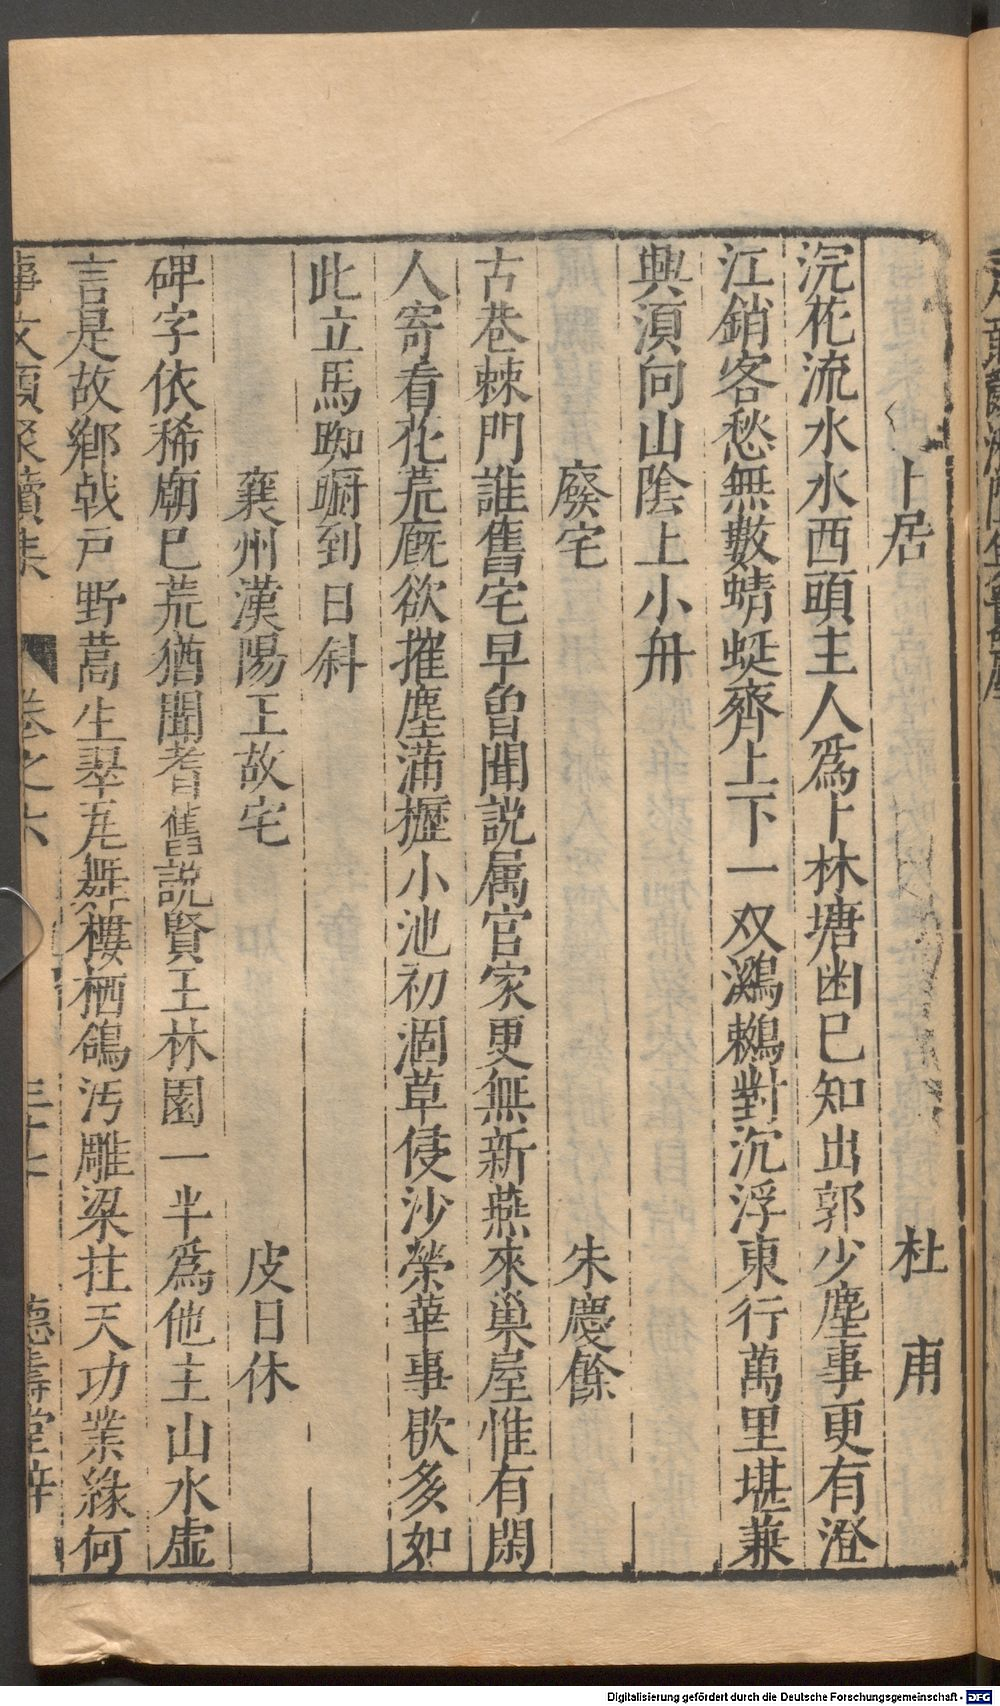 卜居 杜甫
浣花流水水西頭主人爲卜林塘幽已知出郭少塵事更有澄
江銷客愁無數蜻蜓齊上下一双鸂鶒對沉浮東行萬里堪兼
興須向山陰上小舟
廢宅 朱慶餘
古巷棘門誰舊宅早曾聞説属官家更無新燕來巢屋惟有閑
人寄看花荒厩欲摧塵滿攊小池初涸草侵沙榮華事歇多如
此立馬踟蹰到日斜
襄州漢陽王故宅 皮日休
碑字依稀廟已荒猶聞耆舊説賢王林園一半爲他主山水虚
言是故鄉戟戸野蒿生翠瓦舞樓栖鴿汚雕梁拄天功業緣何
事文類聚續集 卷之六 三十七 德壽堂梓
Digitalisierung gefördert durch die Deutsche Forschungsgemeinschaft - DFG